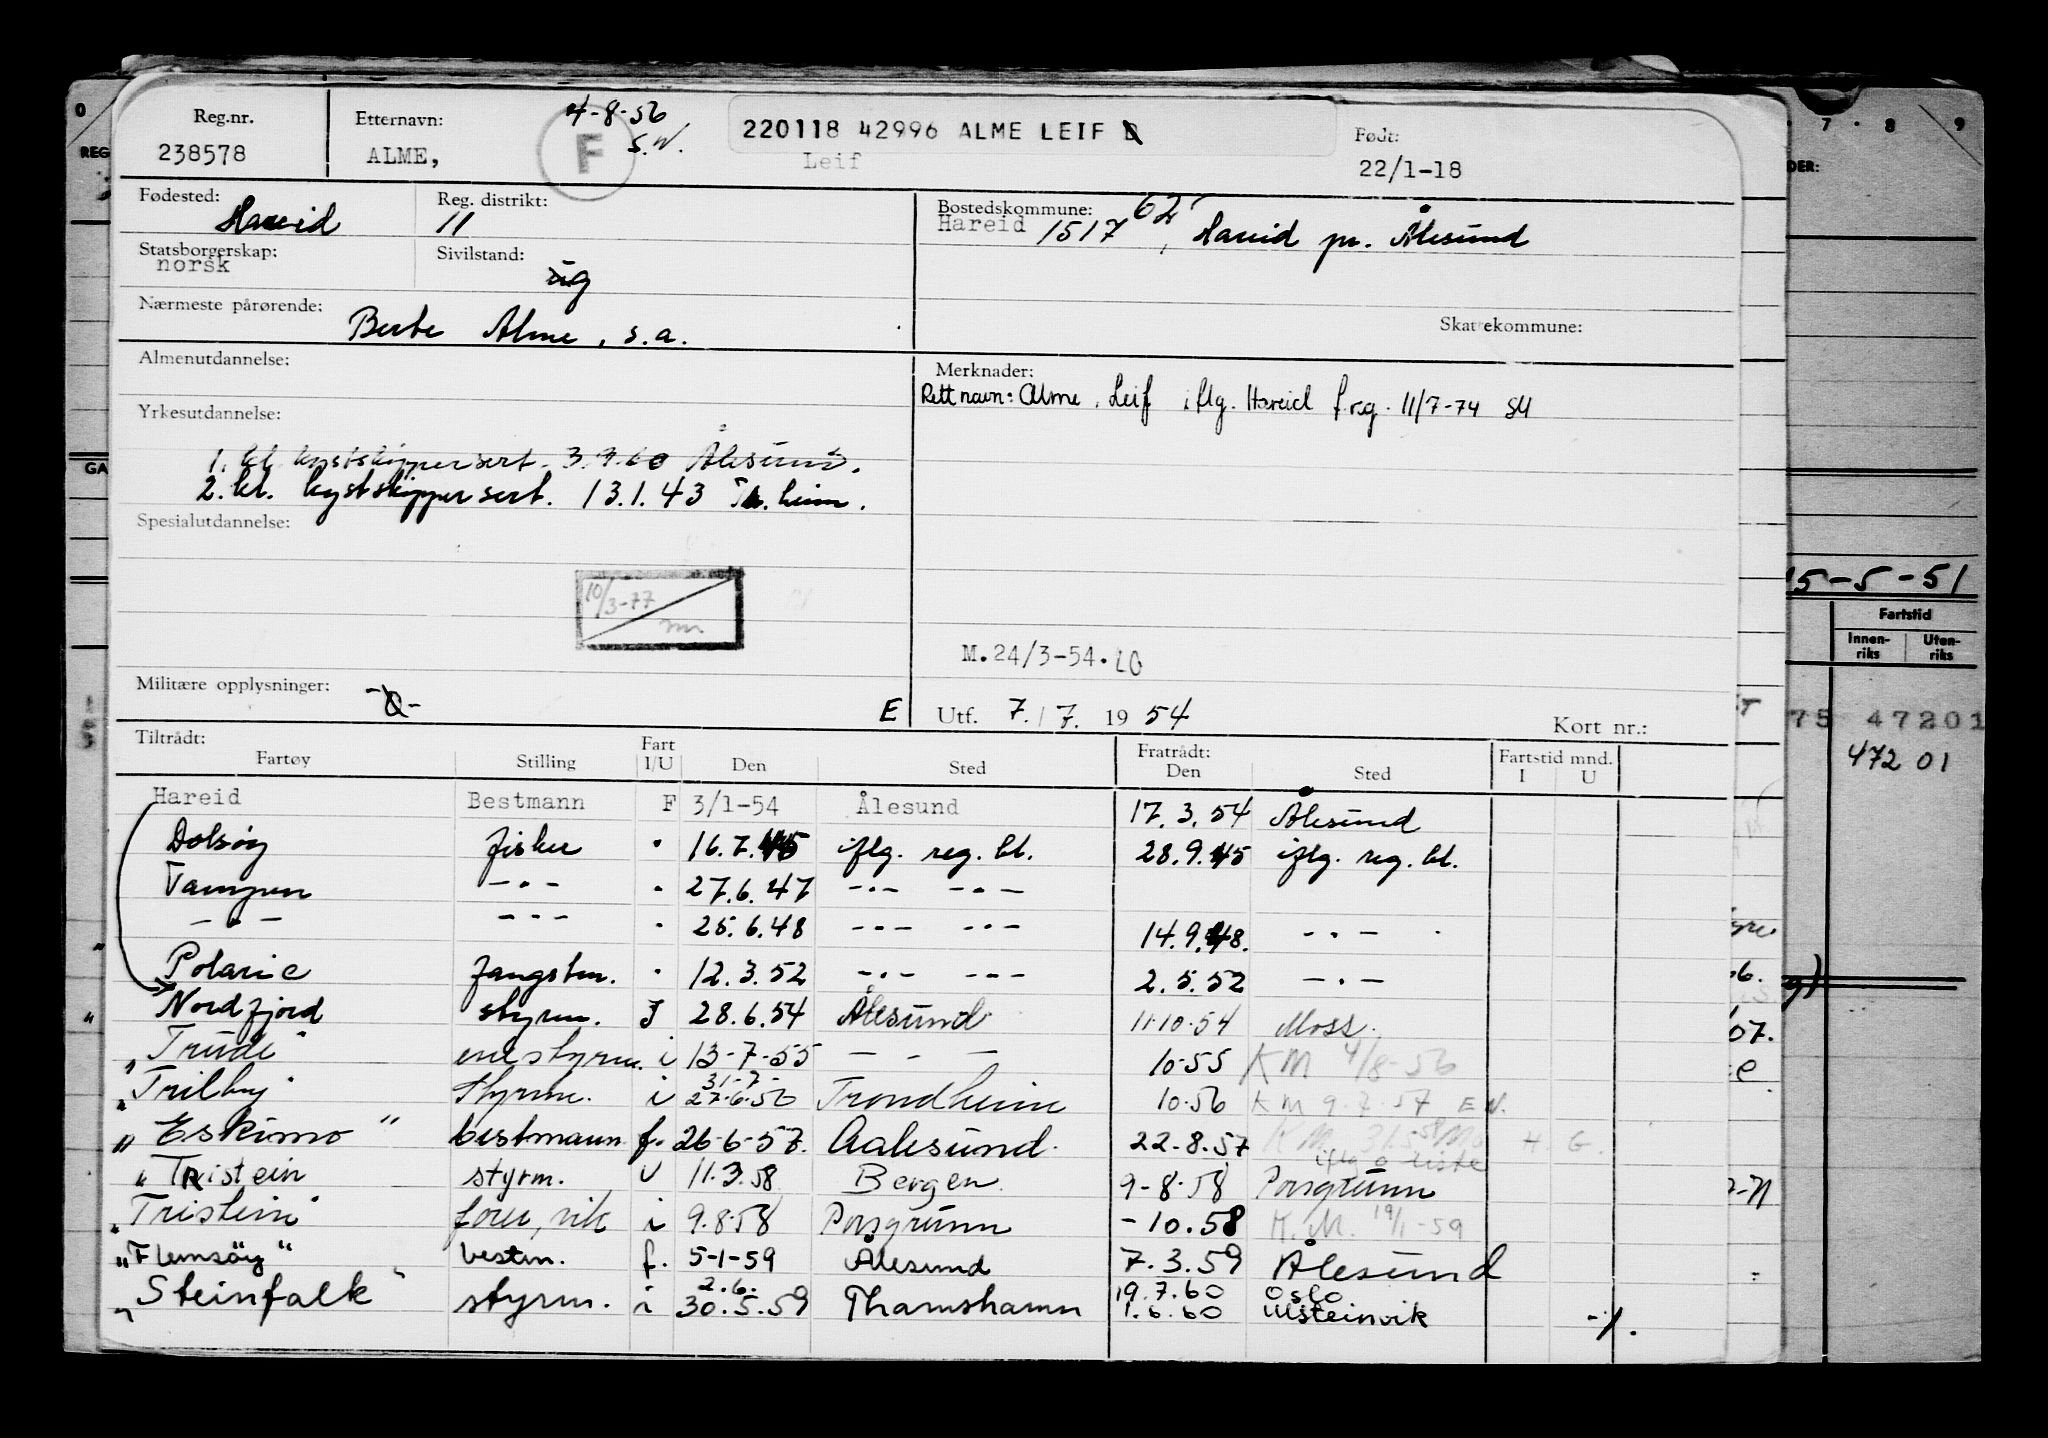 Reg.nr. Etternavn: 4-8-56 S.W. F 220118 42996 ALME LEIF Født:
238578 ALME, Leif 22/1-18
Fødested: Hareid Reg. distrikt: 11 Bostedskommune: Hareid 1517 62, Hareid pr. Ålesund
Statsborgerskap: norsk Sivilstand: ug
Nærmeste pårørende: Berte Alme, s.a. Skattekommune:
Almenutdannelse: Merknader:
Rett navn: Alme, Leif iflg. Hareid f.reg. 11/7-74
Yrkesutdannelse:
1. kl. kystskippersert. 3.9.60 Ålesund.
2. kl. kystskippersert. 13.1.43 Tr.heim.
Spesialutdannelse:
10/3-77
M.24/3-54.LG
Militære opplysninger: E Utf. 7. / 7. 19 54 Kort nr.:
Tiltrådt: Fratrådt: Fartstid mnd.
Fartøy Stilling Fart I/U Den Sted Den Sted I U
Hareid Bestmann F 3/1-54 Ålesund 17.3.54 Ålesund
Dolsøy fisker " 16.7.45 iflg. reg. bl. 28.9.45 iflg. reg. bl.
Tampen -"- " 27.6.47 -"- -"-
-"- -"- " 25.6.48 -"- -"- 14.9.48. -"-
Polaric fangstm. " 12.3.52 -"- -"- 2.5.52 -"-
"Nordfjord styrm. I 28.6.54 Ålesund 11-10-54 Moss.
"Trudi" styrm. i 13-7-55 - - - 10-55 KM 4/8-56
"Trilby" styrm. i 31-7- 27-6-56 Trondheim 10-56 KM 9.7.57 E.W.
"Eskimo" bestmann f. 26-6-57. Aalesund. 22-8-57 KM H. G.
"Tristein styrm. U 11.3.58 Bergen 9-8-58 Porsgrunn
"Tristein" fører, vik i 9.8.58 Porsgrunn -10.58 K.M. 19/1-59
"Flemsøy" bestm. f. 5-1-59 Ålesund 7.3.59 Ålesund
"Steinfalk" styrm. i 2.6. 30.5.59 Thamshamn 19.7.60 Oslo
1.6.60 Ulsteinvik -/.
15-5-51
Fartstid
Innenriks Utenriks
75 47201
472 01